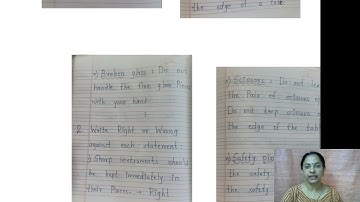 the edge of a table
a) Broken glass : Do not
handle the fine glass Pieces
with your hand.
2. Write Right or Wrong
against each statement:
i) Sharp instruments should
be kept immediately in
their Places. → Right
Scissors : Do not
the Pair of scissors
Do not keep scissors
the edge of the tab
Safety
the safety
the safety